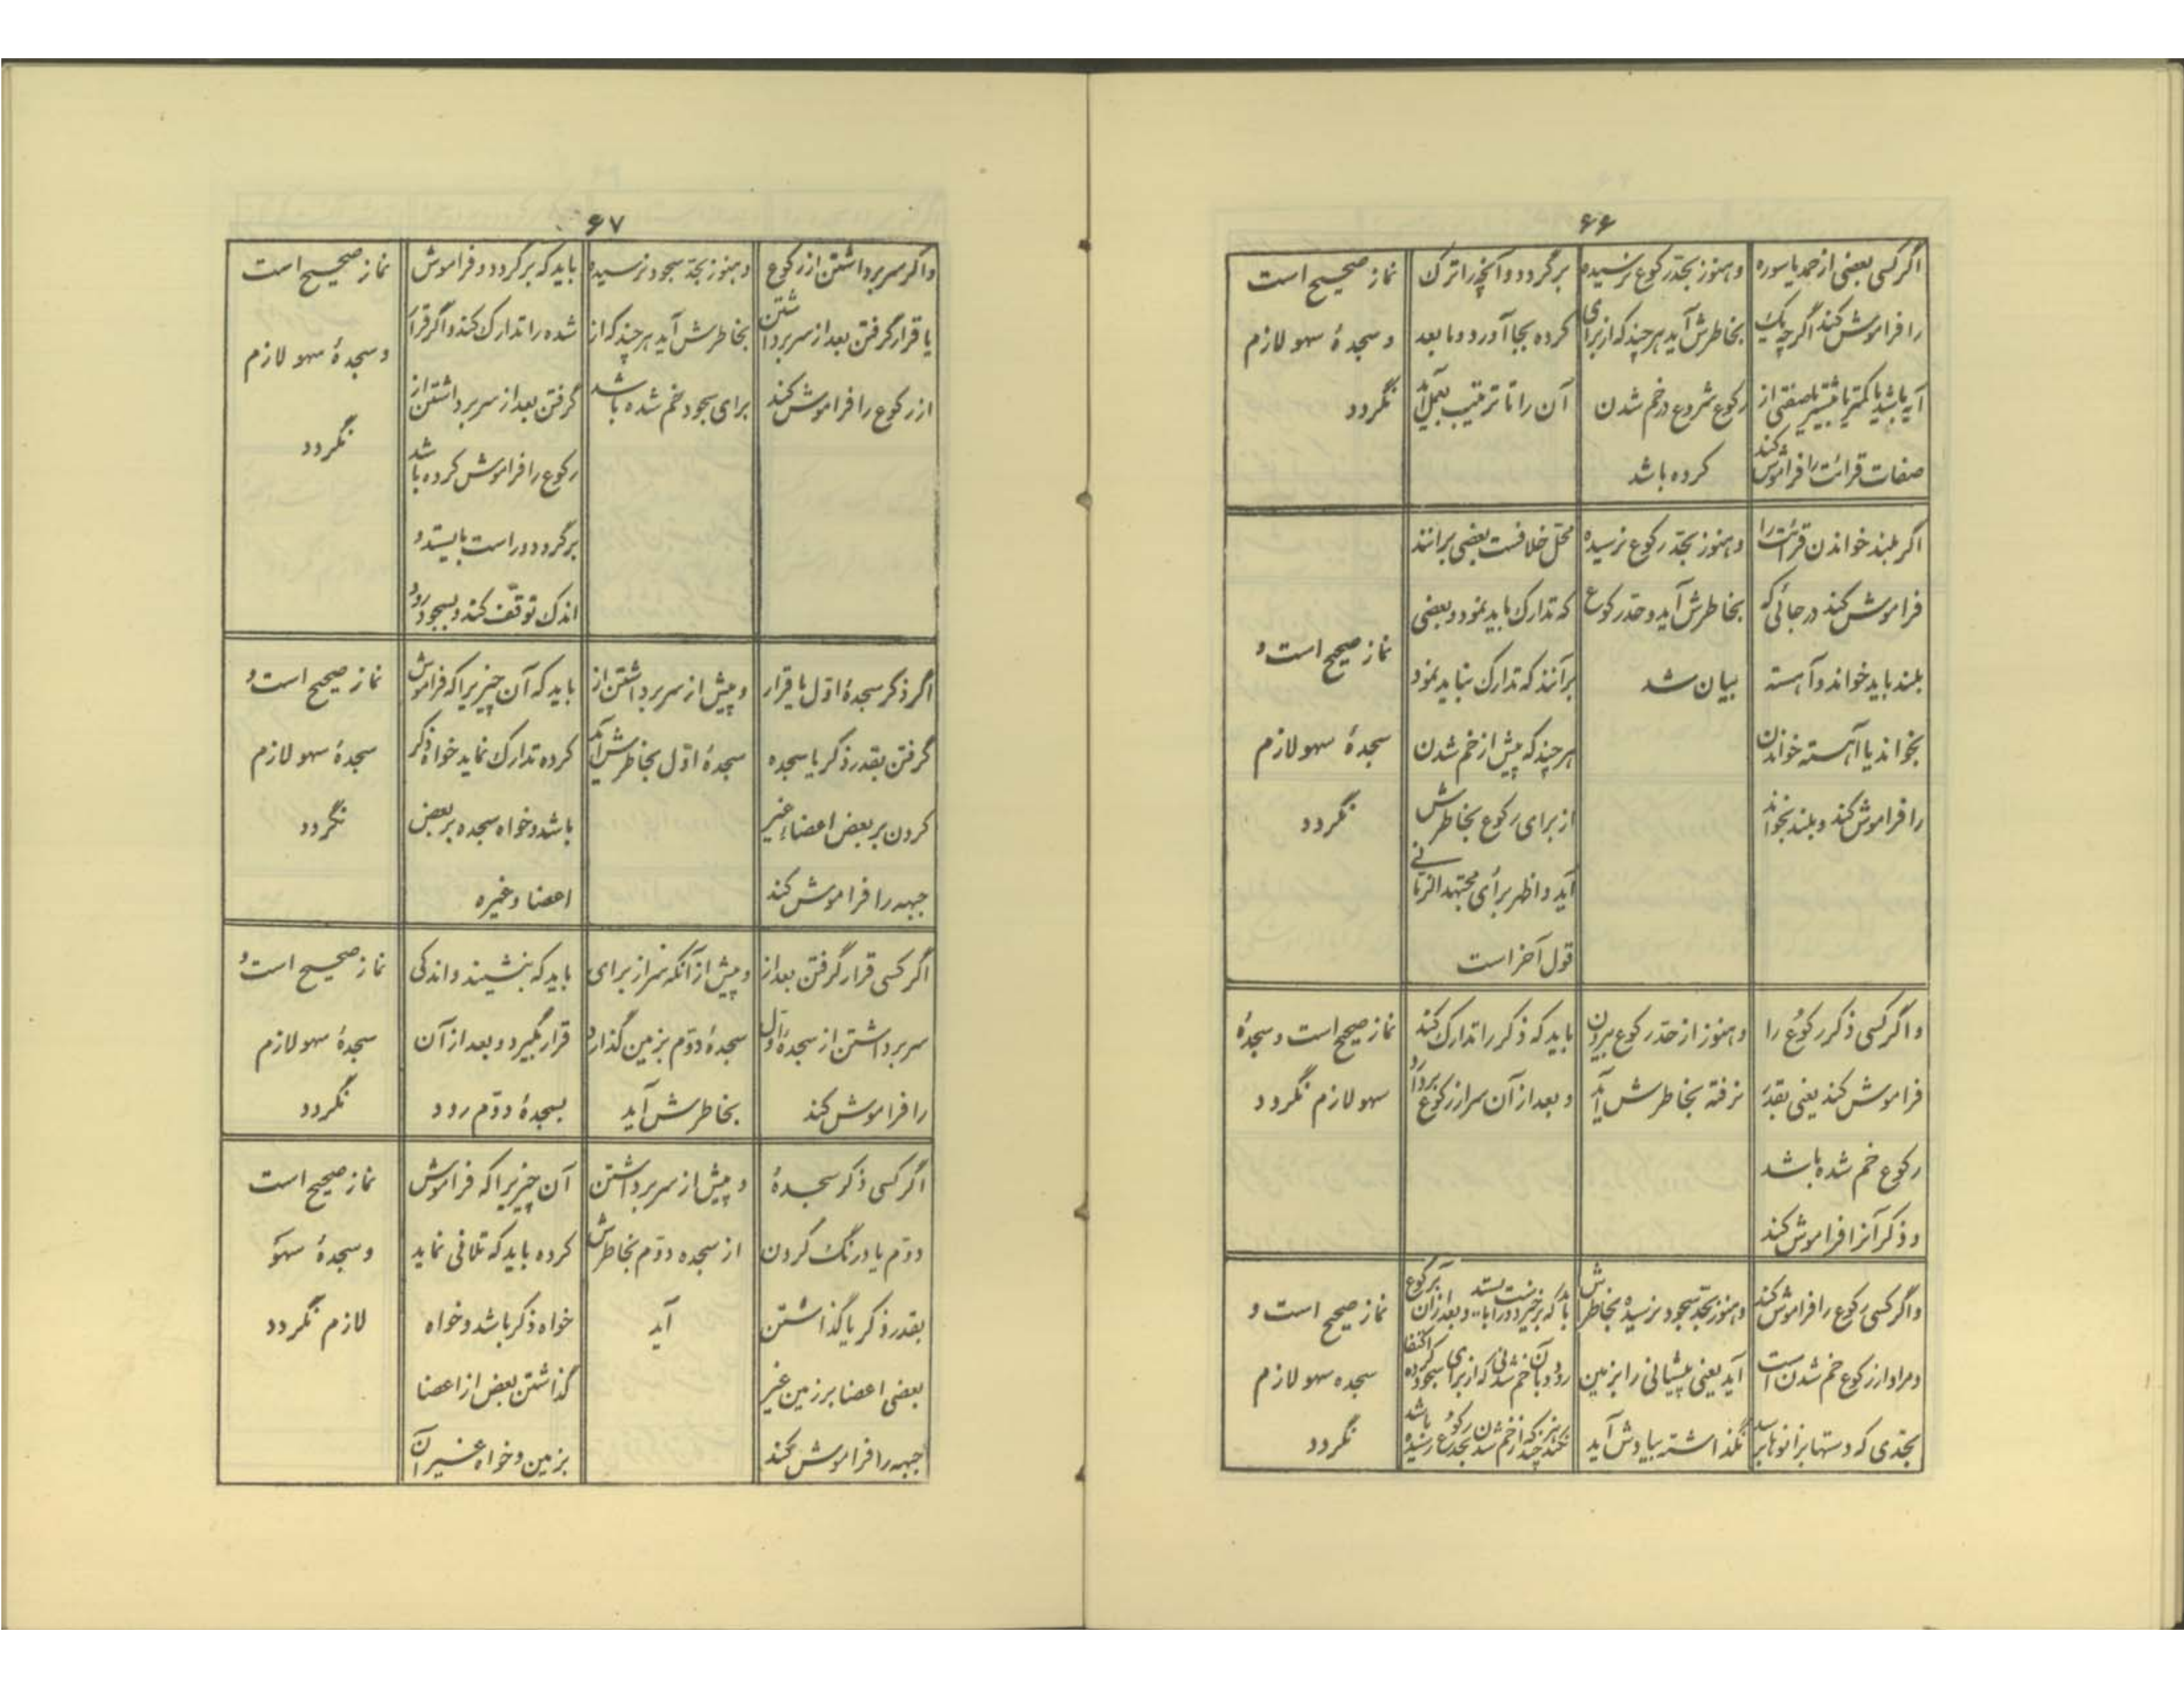 ۶۶
اگر کسی بعضی از حمد یا سوره
را فراموش کند اگر چه یک
آیه باشد یا کمتر یا بیشتر یا صفتی از
صفات قرائت را فراموش کند
و هنوز بحد رکوع نرسیده
بخاطرش آید هر چند که از برای
رکوع شروع در خم شدن
کرده باشد
برگردد و آنچه را ترک
کرده بجا آورد و ما بعد
آن را تا ترتیب بعمل آید
نماز صحیح است
و سجدهٔ سهو لازم
نگردد
اگر بلند خواندن قرائت را
فراموش کند در جائی که
بلند باید خواند و آهسته
بخواند یا آهسته خواندن
را فراموش کند و بلند بخواند
و هنوز بحد رکوع نرسیده
بخاطرش آید و حد رکوع
بیان شد
محل خلافست بعضی برانند
که تدارک باید نمود و بعضی
برآنند که تدارک نباید نمود
هر چند که پیش از خم شدن
از برای رکوع بخاطرش
آید و اظهر برأی مجتهد الزمانی
قول آخر است
نماز صحیح است و
سجدهٔ سهو لازم
نگردد
و اگر کسی ذکر رکوع را
فراموش کند یعنی بقدر
رکوع خم شده باشد
و ذکر آنرا فراموش کند
و هنوز از حد رکوع بیرون
نرفته بخاطرش آید
باید که ذکر را تدارک کند
و بعد از آن سر از رکوع بردارد
نماز صحیح است و سجدهٔ
سهو لازم نگردد
و اگر کسی رکوع را فراموش کند
و مراد از رکوع خم شدن است
بحدی که دستها بزانوها برسد
و هنوز بحد سجود نرسیده بخاطرش
آید یعنی پیشانی را بزمین
نگذاشته بیادش آید
باید که برخیزد و راست بایستد و بعد از آن برکوع
رود و بآن خم شدنی که از برای سجود کرده اکتفا
نکند هر چند که از خم شدن بحد رکوع رسیده باشد
نماز صحیح است و
سجده سهو لازم
نگردد
۶۷
و اگر سر برداشتن از رکوع
یا قرار گرفتن بعد از سر برداشتن
از رکوع را فراموش کند
و هنوز بحد سجود نرسیده
بخاطرش آید هر چند که از
برای سجود خم شده باشد
باید که برگردد و فراموش
شده را تدارک کند و اگر قرار
گرفتن بعد از سر برداشتن از
رکوع را فراموش کرده باشد
برگردد و راست بایستد و
اندک توقّف کند و بسجود رود
نماز صحیح است
و سجدهٔ سهو لازم
نگردد
اگر ذکر سجدهٔ اوّل یا قرار
گرفتن بقدر ذکر یا سجده
کردن بر بعض اعضاء غیر
جبهه را فراموش کند
و پیش از سر برداشتن از
سجدهٔ اوّل بخاطرش آید
باید که آن چیزیرا که فراموش
کرده تدارک نماید خواه ذکر
باشد و خواه سجده بر بعض
اعضا و غیره
نماز صحیح است و
سجدهٔ سهو لازم
نگردد
اگر کسی قرار گرفتن بعد از
سر برداشتن از سجدهٔ اوّل
را فراموش کند
و پیش از آنکه سر از برای
سجدهٔ دوّم بزمین گذارد
بخاطرش آید
باید که بنشیند و اندکی
قرار بگیرد و بعد از آن
بسجدهٔ دوّم رود
نماز صحیح است و
سجدهٔ سهو لازم
نگردد
اگر کسی ذکر سجدهٔ
دوّم یا درنگ کردن
بقدر ذکر یا گذاشتن
بعضی اعضا بر زمین غیر
جبهه را فراموش کند
و پیش از سر برداشتن
از سجده دوّم بخاطرش
آید
آن چیزیرا که فراموش
کرده باید که تلافی نماید
خواه ذکر باشد و خواه
گذاشتن بعض از اعضا
بزمین و خواه غیر آن
نماز صحیح است
و سجدهٔ سهو
لازم نگردد